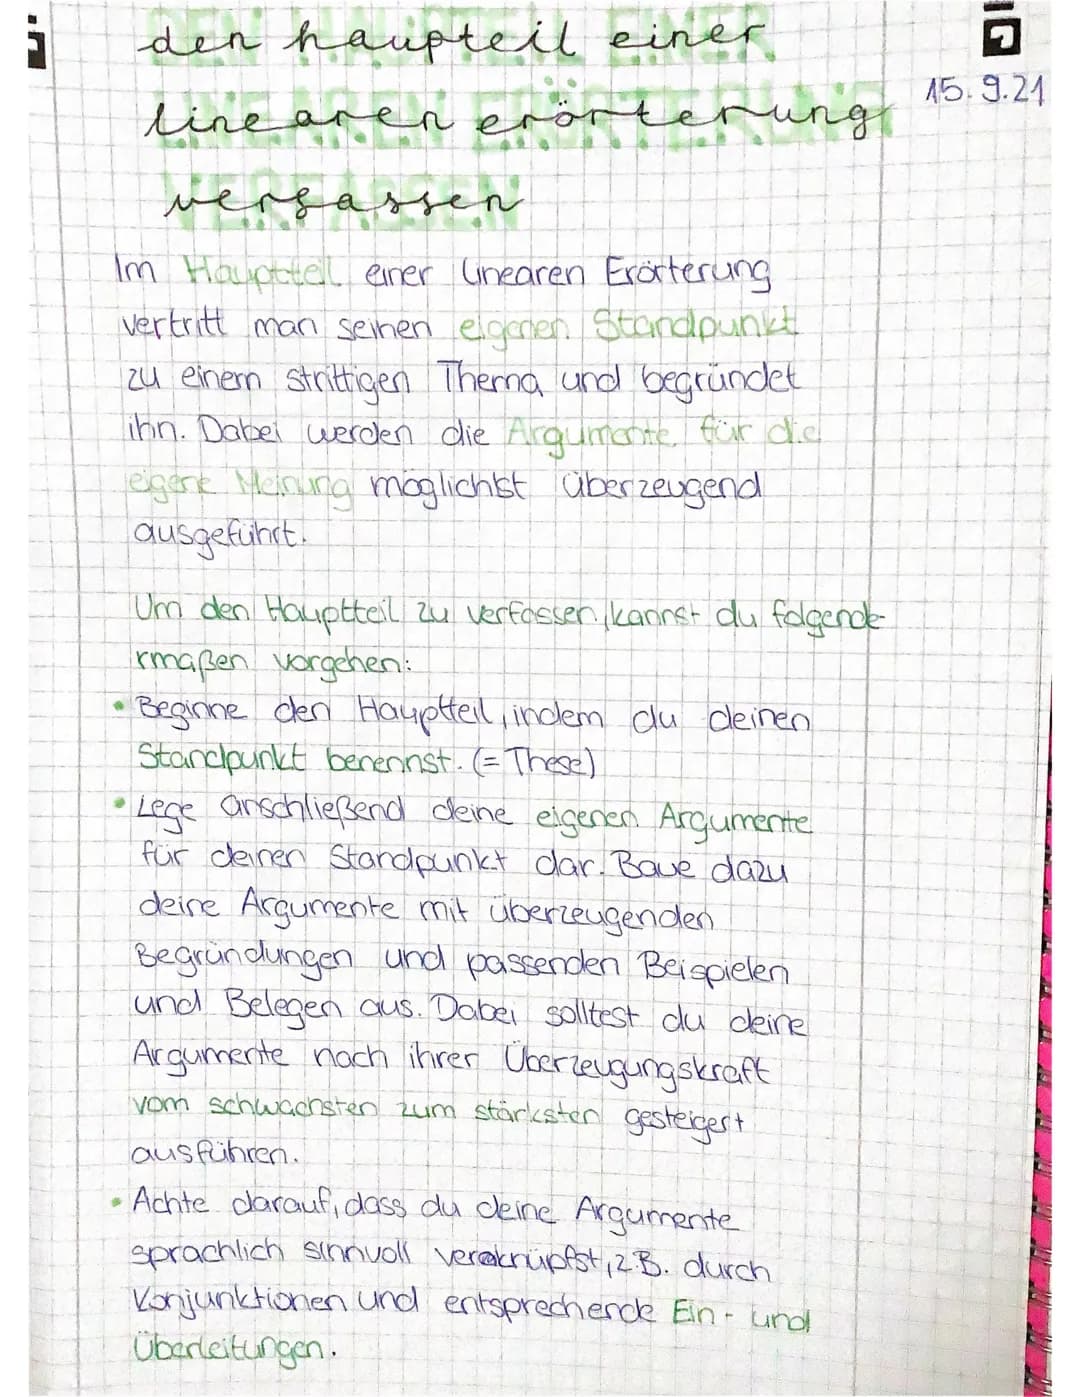 den haupteil einer
15.9.21
linearen erörterung
verfassen
Im Hauptteil einer linearen Erörterung
vertritt man seinen eigenen Standpunkt
zu einem strittigen Thema und begründet
ihn. Dabei werden die Argumente für die
eigene Meinung möglichst überzeugend
ausgeführt.
Um den Hauptteil zu verfassen, kannst du folgende-
rmaßen vorgehen:
• Beginne den Hauptteil, indem du deinen
Standpunkt benennst. (= These)
• Lege anschließend deine eigenen Argumente
für deinen Standpunkt dar. Baue dazu
deine Argumente mit überzeugenden
Begründungen und passenden Beispielen
und Belegen aus. Dabei solltest du deine
Argumente nach ihrer Überzeugungskraft
vom schwächsten zum stärksten gesteigert
ausführen.
• Achte darauf, dass du deine Argumente
sprachlich sinnvoll verknüpfst, z.B. durch
Konjunktionen und entsprechende Ein- und
Überleitungen.